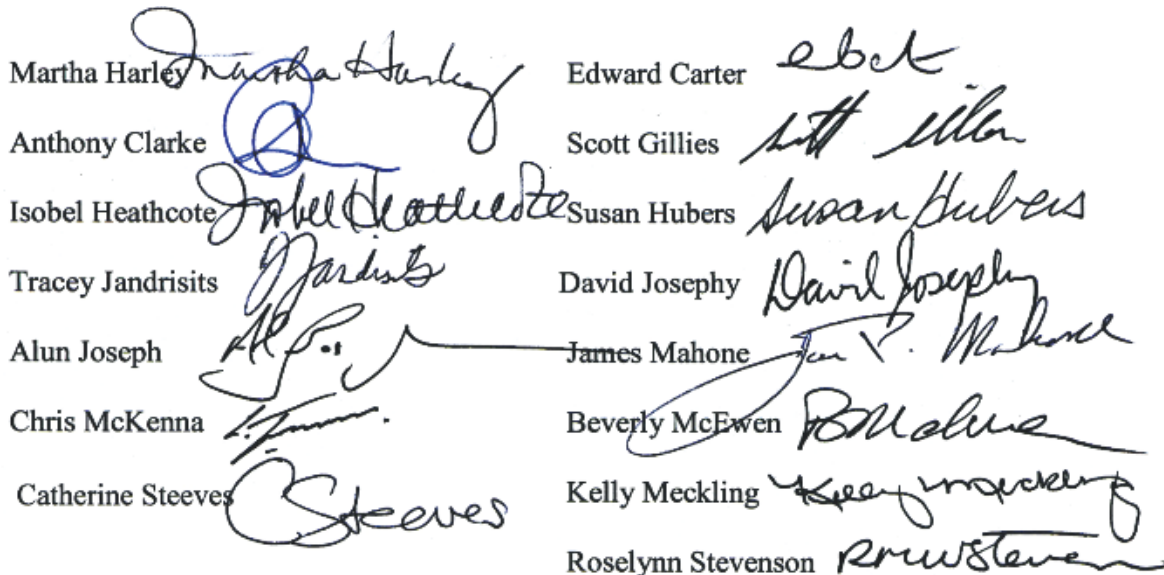 Martha Harley Martha Harley
Anthony Clarke
Isobel Heathcote Isobel Heathcote
Tracey Jandrisits Jandrisits
Alun Joseph
Chris McKenna
Catherine Steeves CSteeves
Edward Carter
Scott Gillies
Susan Hubers Susan Hubers
David Josephy David Josephy
James Mahone P. Mahone
Beverly McEwen
Kelly Meckling Kelly Meckling
Roselynn Stevenson